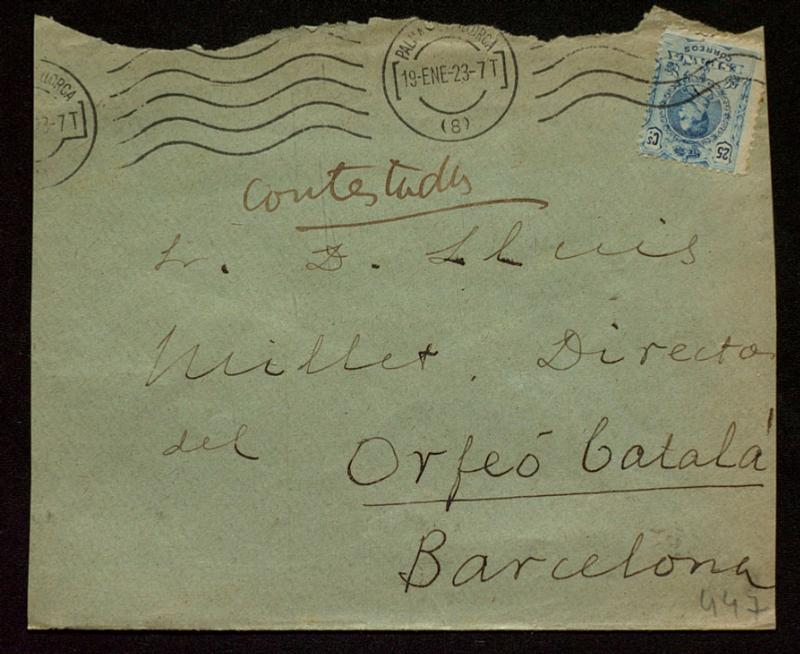 PALMA
19-ENE-23-7T
(8)
3-7T
CORREOS
25 Cs
Contestada
Sr. D. Lluis
Millet. Director
del Orfeó Catalá
Barcelona
447